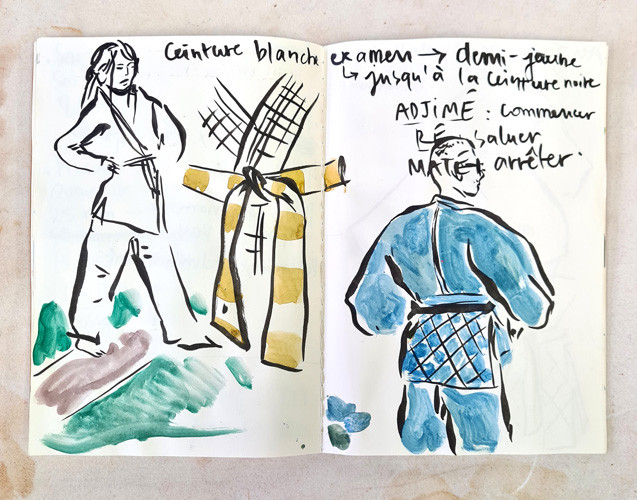 Ceinture blanche examen → demi-jaune
↳ jusqu'à la ceinture noire
ADJIMÉ : commencer
RÉ : saluer
MATÉ : arrêter.